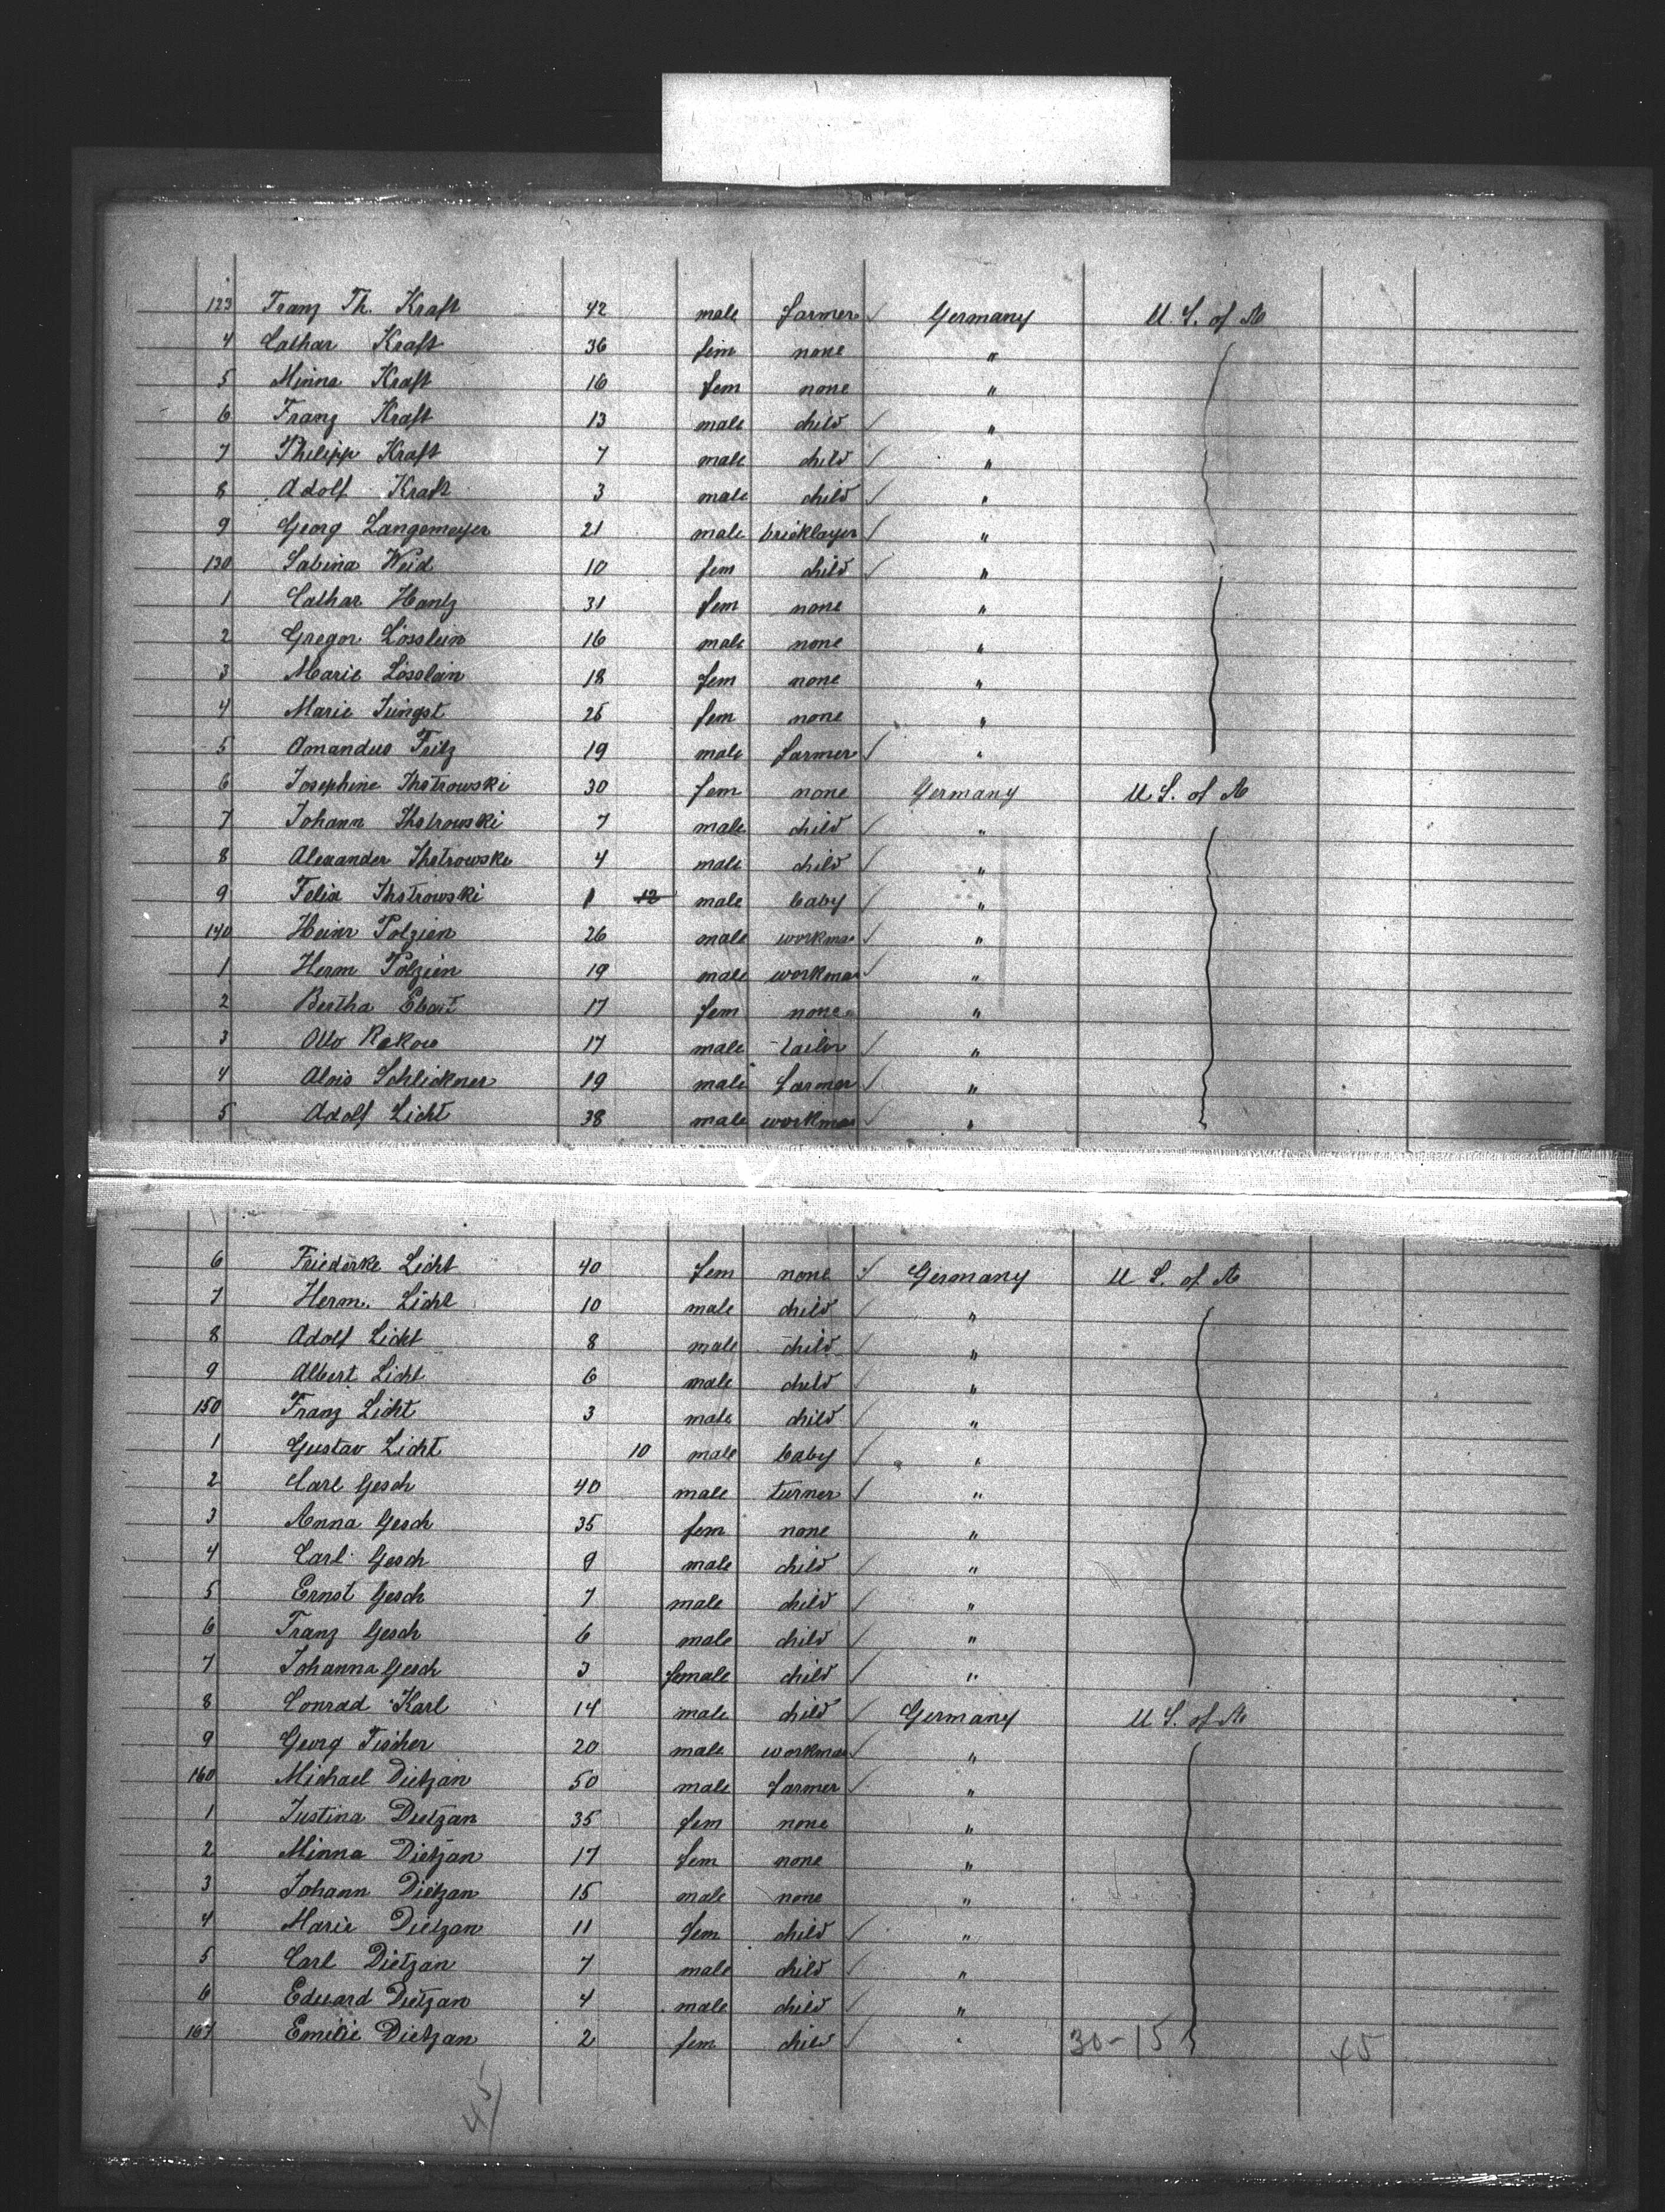 123 Franz Th. Kraft 42 male farmer Germany U. S. of A
4 Cathar Kraft 36 fem none "
5 Minna Kraft 16 fem none "
6 Franz Kraft 13 male child "
7 Philipp Kraft 7 male child "
8 Adolf Kraft 3 male child "
9 Georg Langemeyer 21 male bricklayer "
130 Sabina Weid 10 fem child "
1 Cathar Hantz 31 fem none "
2 Gregor Lösslein 16 male none "
3 Marie Lösslein 18 fem none "
4 Marie Jüngst 25 fem none "
5 Amandus Feitz 19 male farmer "
6 Josephine 30 fem none Germany U S. of A
7 Johann 7 male child "
8 Alexander 4 male child "
9 Felix 1 12 male baby "
140 Heinr Polzien 26 male workman "
1 Herm Polzien 19 male workman "
2 Bertha Ebert 17 fem none "
3 Otto Rakow 17 male tailor "
4 Alois Schlickner 19 male farmer "
5 Adolf Licht 38 male workman "
6 Friederke Licht 40 fem none Germany U S. of A
7 Herm. Licht 10 male child "
8 Adolf Licht 8 male child "
9 Albert Licht 6 male child "
150 Franz Licht 3 male child "
1 Gustav Licht 10 male baby "
2 Carl Gesch 40 male turner "
3 Anna Gesch 35 fem none "
4 Carl Gesch 9 male child "
5 Ernst Gesch 7 male child "
6 Franz Gesch 6 male child "
7 Johanna Gesch 3 female child "
8 Conrad Karl 14 male child Germany U S. of A
9 Georg Fischer 20 male workman "
160 Michael Dietzan 50 male farmer "
1 Justina Dietzan 35 fem none "
2 Minna Dietzan 17 fem none "
3 Johann Dietzan 15 male none "
4 Marie Dietzan 11 fem child "
5 Carl Dietzan 7 male child "
6 Eduard Dietzan 4 male child "
167 Emilie Dietzan 2 fem child " 30-15 45
45